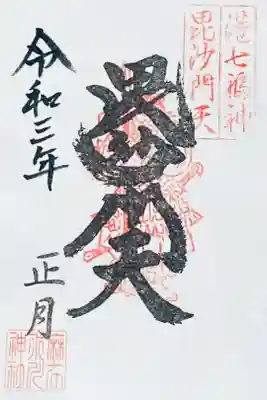 七福神
毘沙門天
毘沙門天
令和三年
正月
麻布
氷川
神社